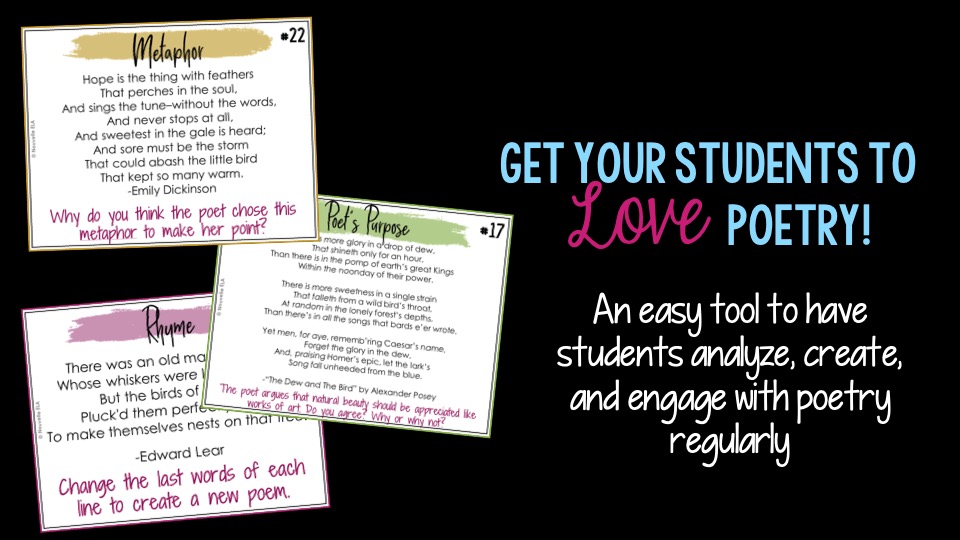 Metaphor
#22
Hope is the thing with feathers
That perches in the soul,
And sings the tune–without the words,
And never stops at all,
And sweetest in the gale is heard;
And sore must be the storm
That could abash the little bird
That kept so many warm.
-Emily Dickinson
Why do you think the poet chose this
metaphor to make her point?
© Nouvelle ELA
Poet's Purpose
#17
more glory in a drop of dew,
That shineth only for an hour,
Than there is in the pomp of earth's great Kings
Within the noonday of their power.
There is more sweetness in a single strain
That falleth from a wild bird's throat,
At random in the lonely forest's depths,
Than there's in all the songs that bards e'er wrote.
Yet men, for aye, rememb'ring Caesar's name,
Forget the glory in the dew,
And, praising Homer's epic, let the lark's
Song fall unheeded from the blue.
-"The Dew and The Bird" by Alexander Posey
The poet argues that natural beauty should be appreciated like
works of art. Do you agree? Why or why not?
© Nouvelle ELA
Rhyme
There was an old
Whose whiskers were
But the birds of
Pluck'd them
To make themselves nests on that
-Edward Lear
Change the last words of each
line to create a new poem.
© Nouvelle ELA
GET YOUR STUDENTS TO
Love POETRY!
An easy tool to have
students analyze, create,
and engage with poetry
regularly